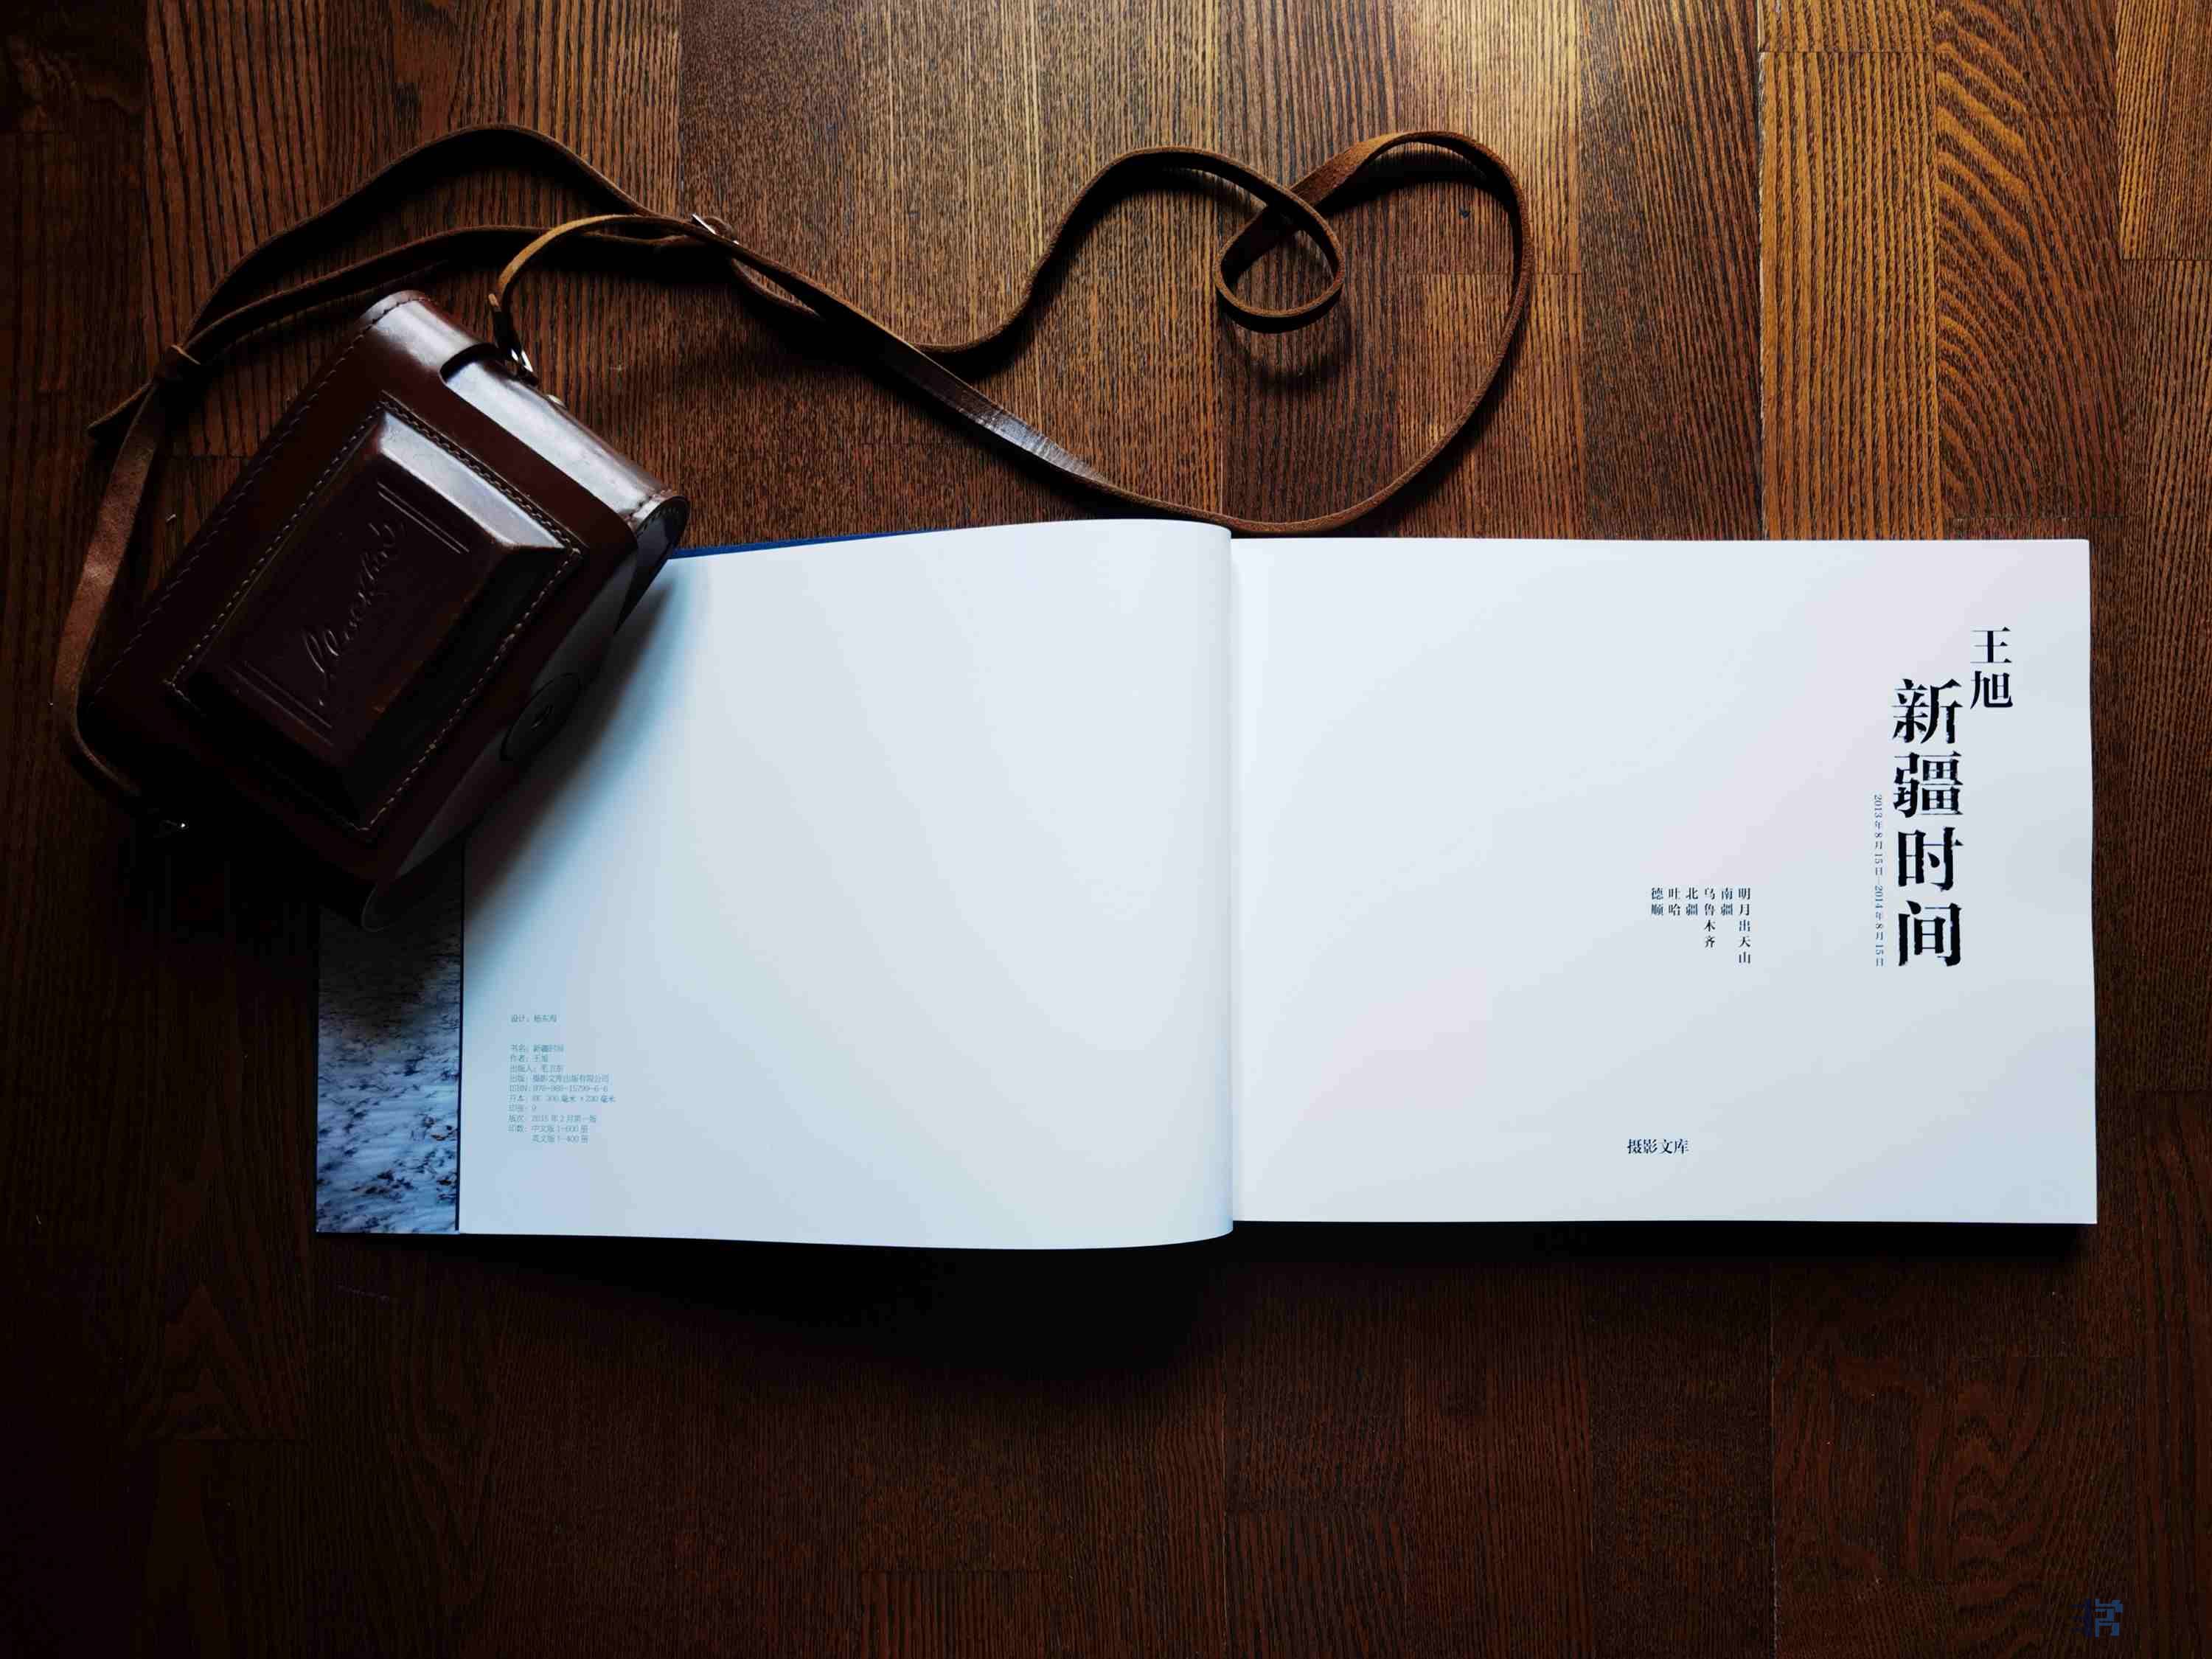 王旭
新疆时间
2013年8月15日—2014年8月15日
明月出天山
南疆
乌鲁木齐
北疆
吐哈
德顺
摄影文库
书名：新疆时间
作者：王旭
出版：摄影文库出版有限公司
开本：8K 306毫米×230毫米
印张：9
版次：2015年2月第一版
印数：中文版1-600册
英文版1-400册